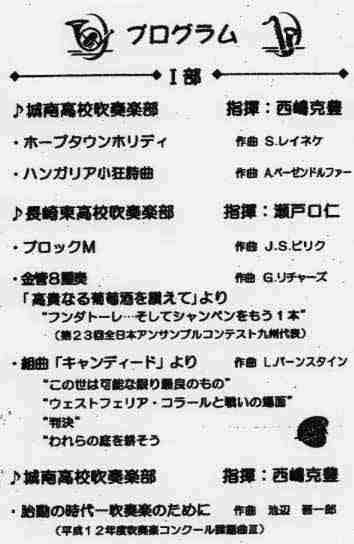 プログラム
I部
♪城南高校吹奏楽部 指揮：西嶋克豊
・ホープタウンホリディ 作曲 S.レイネケ
・ハンガリア小狂詩曲 作曲 A.ベーゼンドルファー
♪長崎東高校吹奏楽部 指揮：瀬戸口仁
・ブロックM 作曲 J.S.ビリク
・金管8重奏 作曲 G.リチャーズ
「高貴なる葡萄酒を讃えて」より
“フンダトーレ…そしてシャンペンをもう1本”
（第23回全日本アンサンブルコンテスト九州代表）
・組曲「キャンディード」より 作曲 L.バーンスタイン
“この世は可能な限り最良のもの”
“ウェストフェリア・コラールと戦いの場面”
“判決”
“われらの庭を耕そう
♪城南高校吹奏楽部 指揮：西嶋克豊
・胎動の時代ー吹奏楽のために 作曲 池辺 晋一郎
（平成12年度吹奏楽コンクール課題曲Ⅲ）